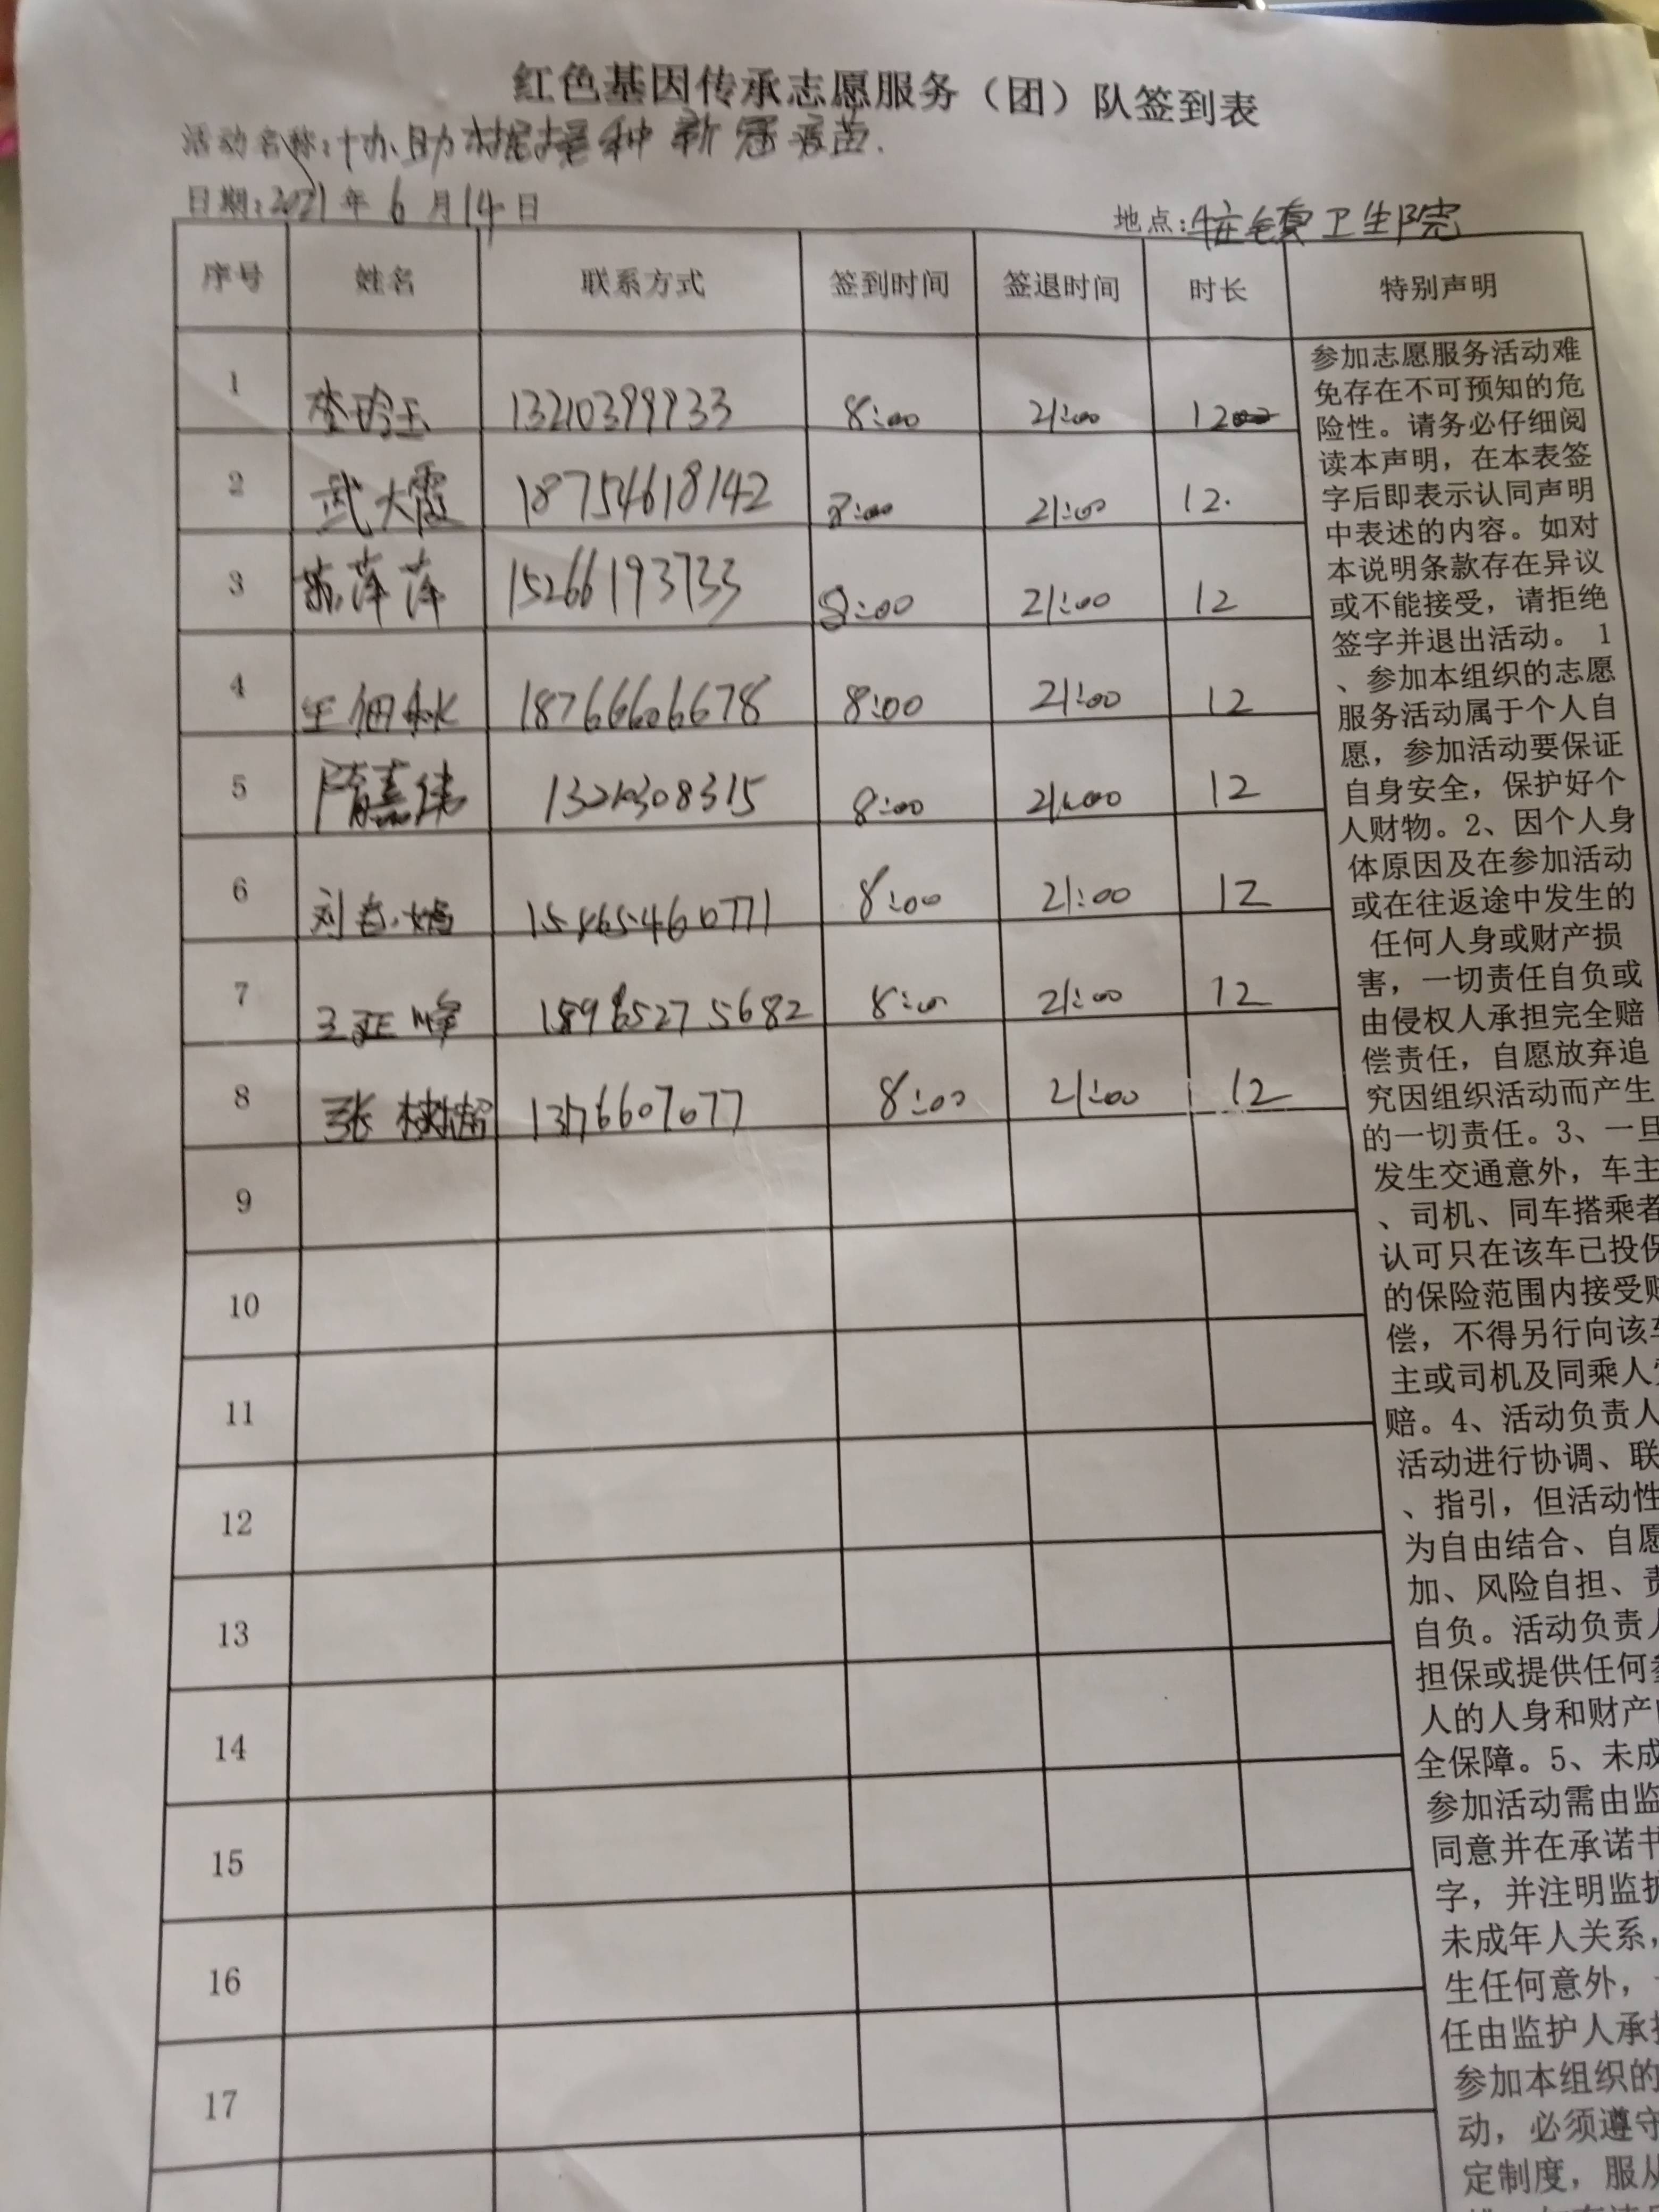 红色基因传承志愿服务（团）队签到表
活动名称:协助 接种新冠疫苗.
日期:2021年6月14日
地点: 镇卫生院
序号 姓名 联系方式 签到时间 签退时间 时长 特别声明
1 13210399933 8:00 21:00 12
2 武大霞 18754618142 8:00 21:00 12.
3 萍萍 15266193733 8:00 21:00 12
4 18766606678 8:00 21:00 12
5 隋嘉伟 8:00 21:00 12
6 刘 15865460771 8:00 21:00 12
7 王亚峰 8:00 21:00 12
8 张 8:00 21:00 12
9
10
11
12
13
14
15
16
17
参加志愿服务活动难
免存在不可预知的危
险性。请务必仔细阅
读本声明，在本表签
字后即表示认同声明
中表述的内容。如对
本说明条款存在异议
或不能接受，请拒绝
签字并退出活动。 1
、参加本组织的志愿
服务活动属于个人自
愿，参加活动要保证
自身安全，保护好个
人财物。2、因个人身
体原因及在参加活动
或在往返途中发生的
任何人身或财产损
害，一切责任自负或
由侵权人承担完全赔
偿责任，自愿放弃追
究因组织活动而产生
的一切责任。3、一旦
发生交通意外，车主
、司机、同车搭乘者
认可只在该车已投保
的保险范围内接受赔
偿，不得另行向该车
主或司机及同乘人
赔。4、活动负责人
活动进行协调、联
、指引，但活动性
为自由结合、自愿
加、风险自担、责
自负。活动负责人
担保或提供任何参
人的人身和财产
全保障。5、未成
参加活动需由监
同意并在承诺书
字，并注明监护
未成年人关系，
生任何意外，
任由监护人承担
参加本组织的
动，必须遵守
定制度，服从